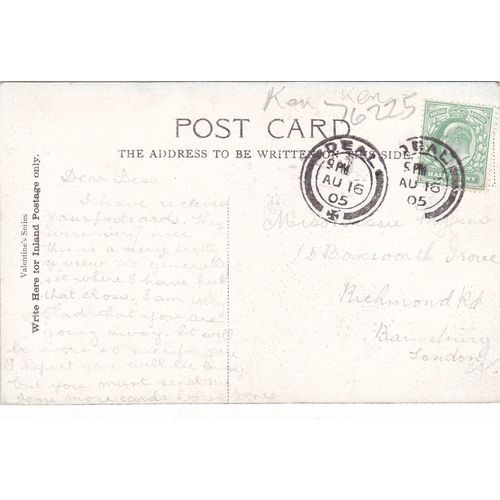 Ken Ken
76225
POST CARD
THE ADDRESS TO BE WRITTEN ON THIS SIDE.
DEAL
9 PM
AU 16
05
DEAL
9 PM
AU 16
05
HALFPENNY
Valentine's Series
Write Here for Inland Postage only.
Dear
I have received
your postcard. They
were very nice
this is a very pretty
of view the
sit where I have put
that cross. I am jolly
glad that you are
going away. It will
be for you
I expect you will be
but you must send me
some more cards
Miss
15 Boxworth Grove
Richmond Rd
Barnsbury
London
N.